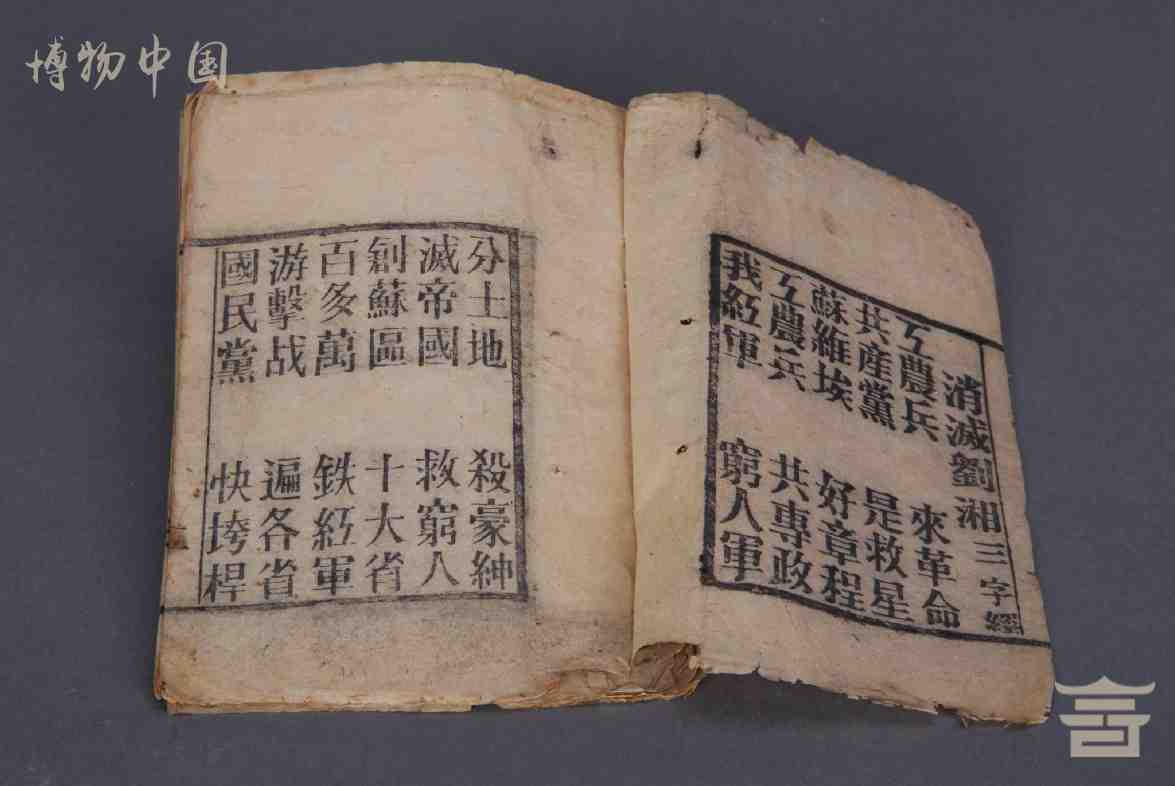 博物中国
消滅劉湘三字經
工農兵 來革命
共産黨 是救星
蘇維埃 好章程
工農兵 共專政
我紅軍 窮人軍
分土地 殺豪紳
滅帝國 救窮人
創蘇區 十大省
百多萬 鉄紅軍
游擊战 遍各省
國民黨 快垮桿